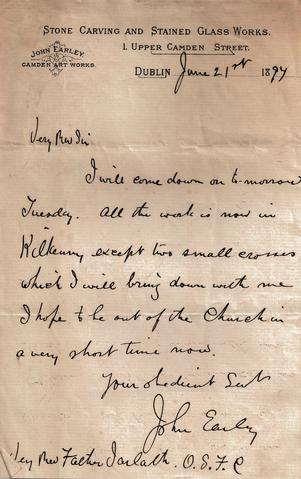 STONE CARVING AND STAINED GLASS WORKS.
JOHN EARLEY.
CAMDEN ART WORKS.
1. UPPER CAMDEN STREET.
DUBLIN June 21st 1897
Very Rev Sir
I will come down on to-morrow
Tuesday. All the work is now in
Kilkenny except two small crosses
which I will bring down with me
I hope to be out of the Church in
a very short time now.
Your obedient Servt
John Earley
Very Rev Father Jarlath. O. S. F. C